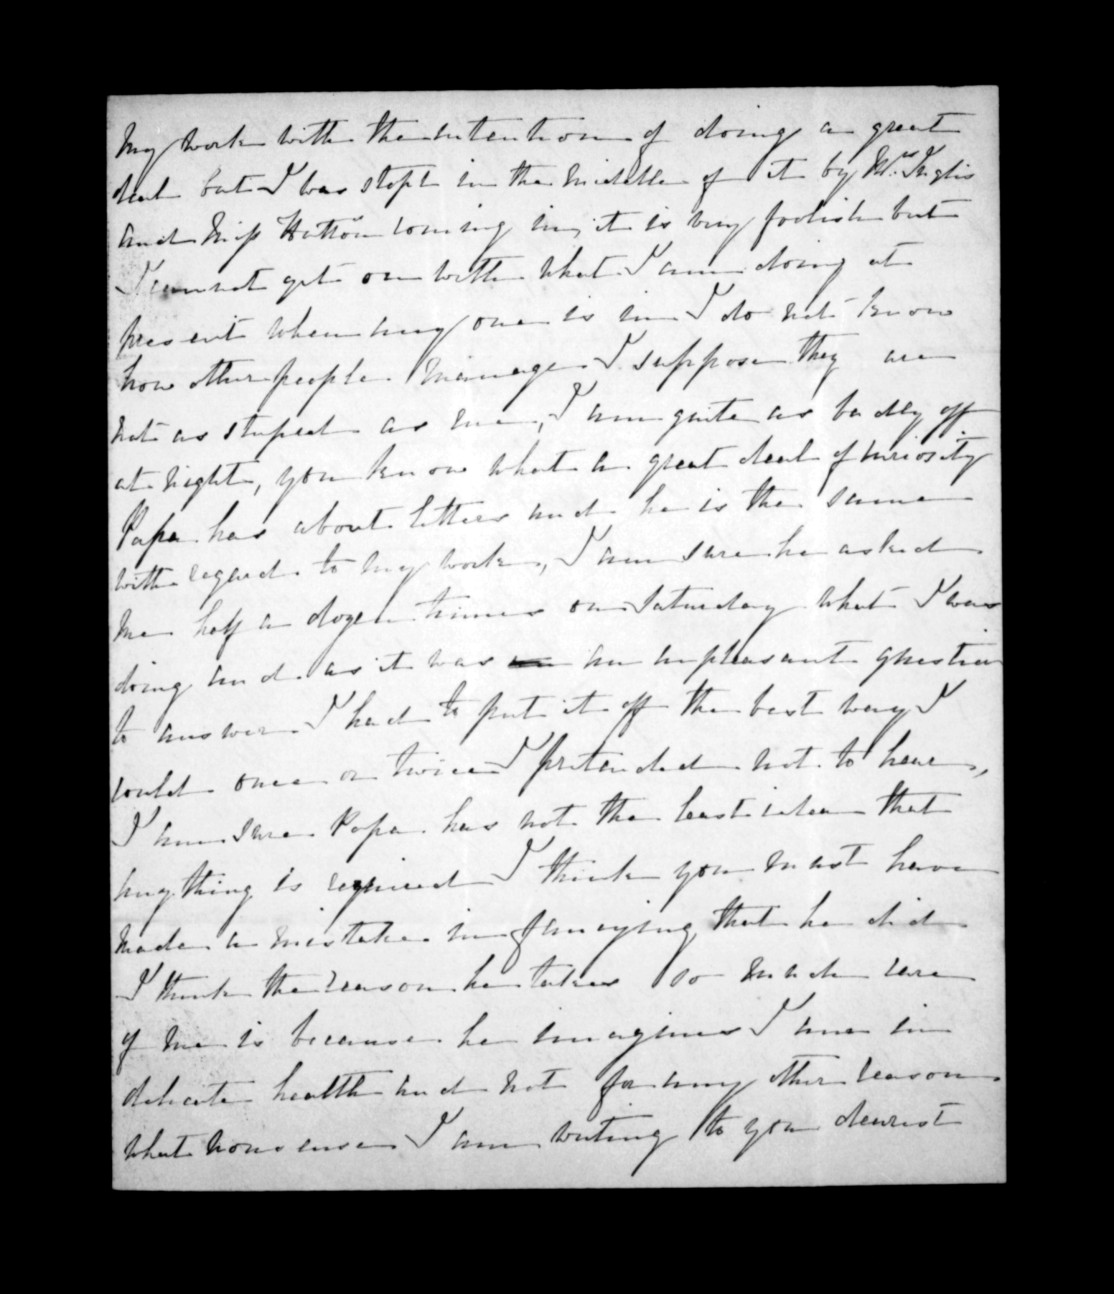 my work with the intention of doing a great
deal but I was stopt in the middle of it by Mrs. Inglis
and Miss Hatton coming in, it is very foolish but
I cannot get on with what I am doing at
present when any one is in I do not know
how other people manage I suppose they are
not as stupid as me, I am quite as badly off
at night, you know what a great deal of curiosity
Papa has about letters and he is the same
with regard to my work, I am sure he asked
me half a dozen times on Saturday what I was
doing and as it was an unpleasant question
to answer I had to put it off the best way I
could once or twice I pretended not to hear,
I am sure Papa has not the least idea that
anything is required I think you must have
made a mistake in fancying that he did
I think the reason he takes so much care
of me is because he imagines I am in
delicate health and not for any other reason
what nonsense I am writing to you dearest